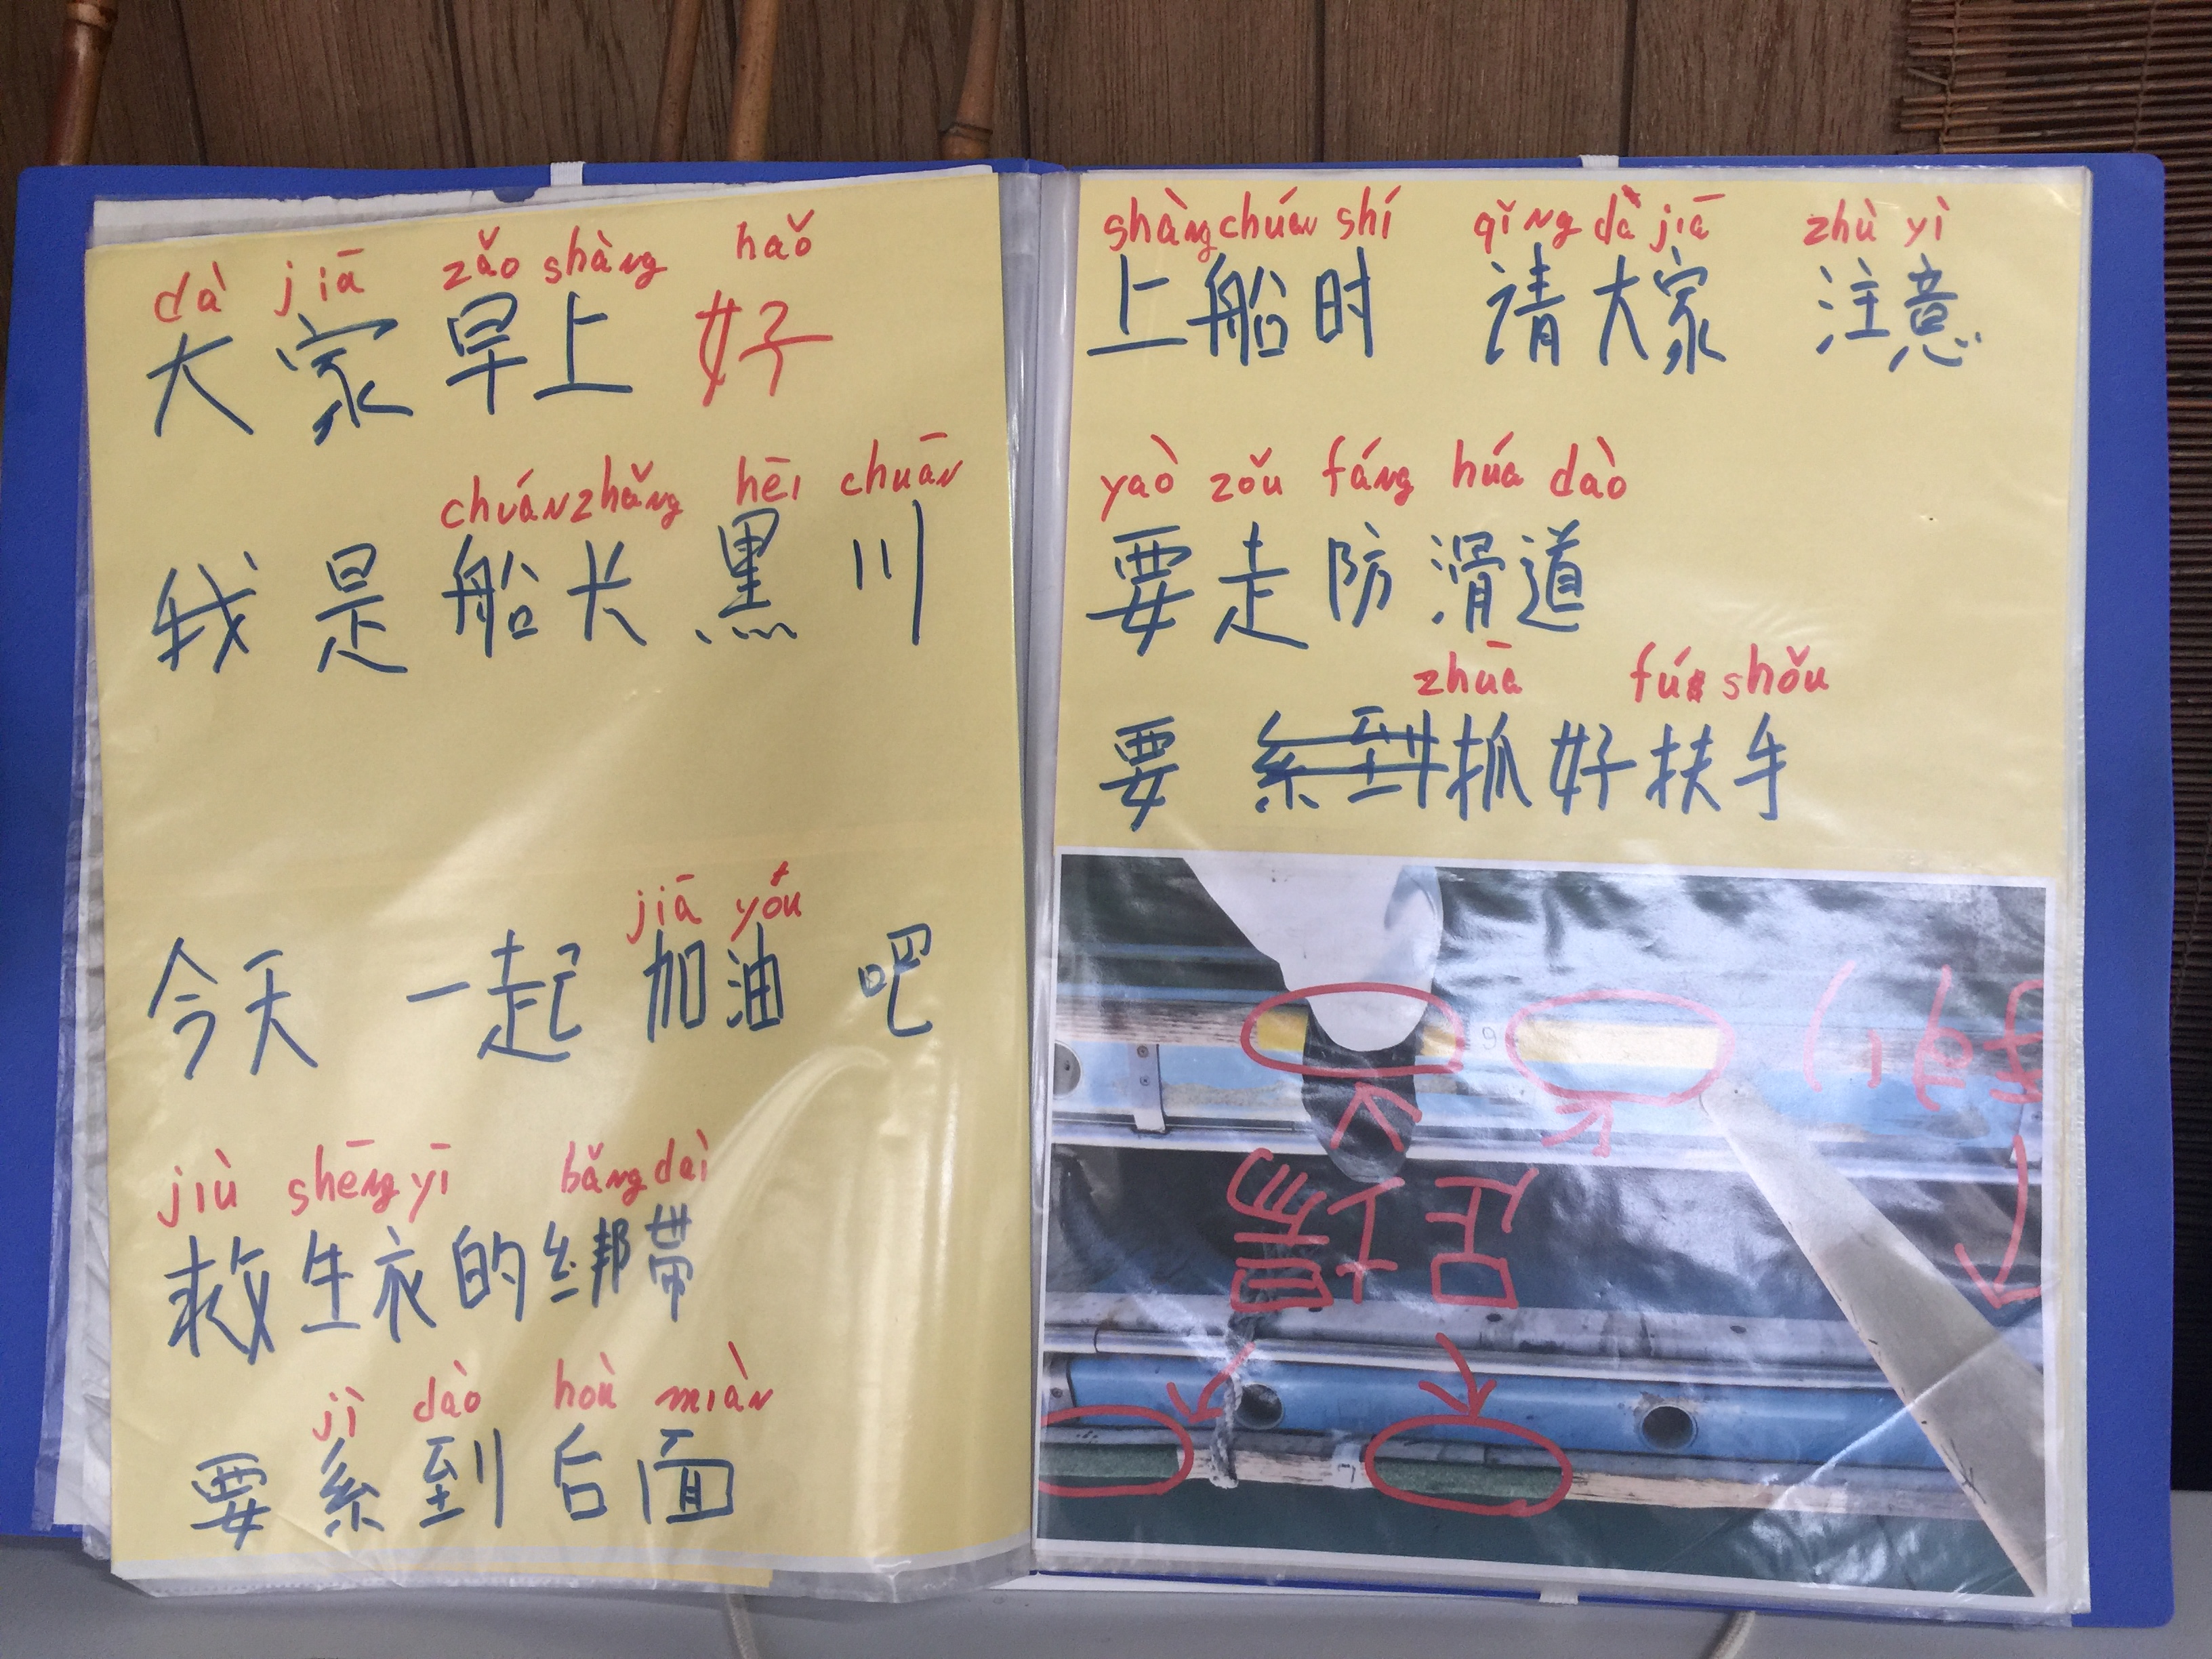 dà jiā zǎo shàng hǎo
大家 早上 好
chuánzhǎng hēi chuān
我 是 船长 黒 川
jiā yóu
今天 一起 加油 吧
jiù shēng yī bǎng dài
救生衣的绑帯
jì dào hòu miàn
要 系到 后面
shàng chuán shí qǐng dà jiā zhù yì
上船时 请大家 注意
yaò zǒu fáng húa dào
要走防滑道
zhuā fú shǒu
要 抓好扶手
足